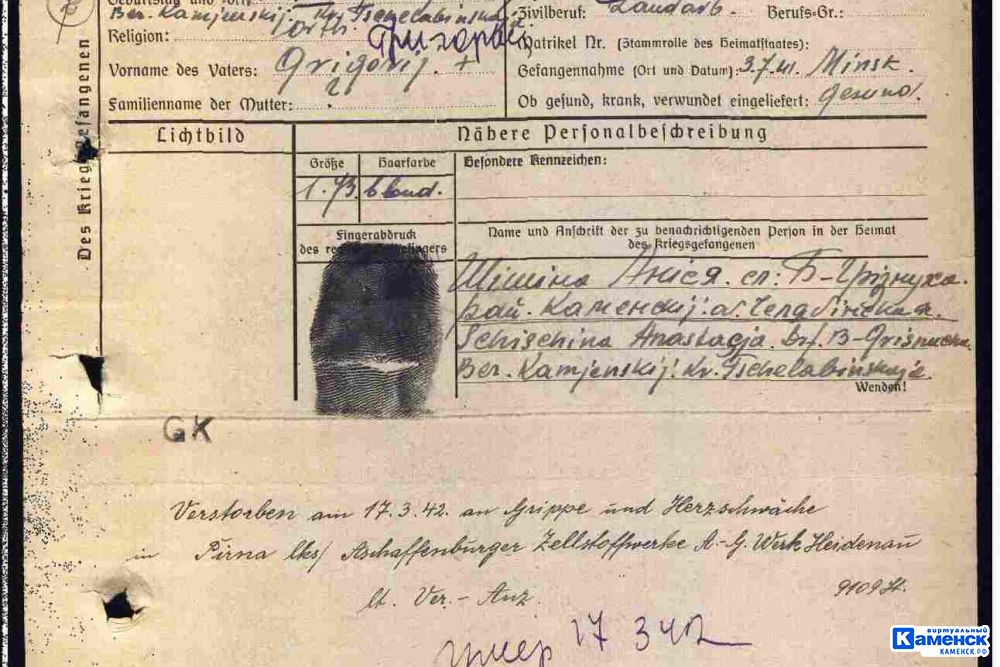 Ber. Kamjenskij. Kr. Tschelabinskaja.
Zivilberuf: Landarb. Berufs-Gr.:
Religion: Orth.
Григорий
Matrikel Nr. (Stammrolle des Heimatstaates):
Vorname des Vaters: Grigorij. +
Gefangennahme (Ort und Datum): 3.7.41. Minsk.
Familienname der Mutter:
Ob gesund, krank, verwundet eingeliefert: Gesund.
Des Kriegsgefangenen
Lichtbild
Nähere Personalbeschreibung
Größe
Haarfarbe
Besondere Kennzeichen:
1.73.
blond.
Fingerabdruck
des rechten Zeigefingers
Name und Anschrift der zu benachrichtigenden Person in der Heimat
des Kriegsgefangenen
Шишина
рай. Каменскij.
Schischina Anastasja. Drf. B-Grisnucha.
Ber. Kamjenskij. Kr. Tschelabinskaje.
Wenden!
GK
Verstorben am 17.3.42. an Grippe und Herzschwäche
in Pirna lks/ Aschaffenburger Zellstoffwerke A-G. Werk Heidenau
lt. Ver.-Anz.
умер 17 3 42
виртуальный
Каменск
КАМЕНСК.РФ